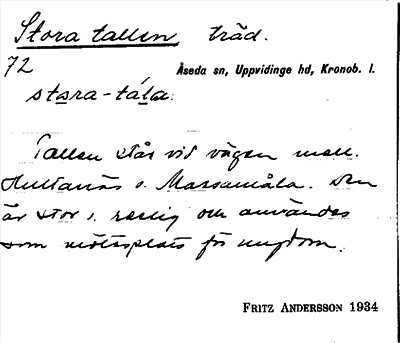 Stora tallen, träd.
72
Åseda sn, Uppvidinge hd, Kronob. l.
stora-tála.
Tallen står vid vägen mell.
Hultanäs o. Massamåla. Den
är stor o. raslig och användes
som mötesplats för ungdom.
FRITZ ANDERSSON 1934